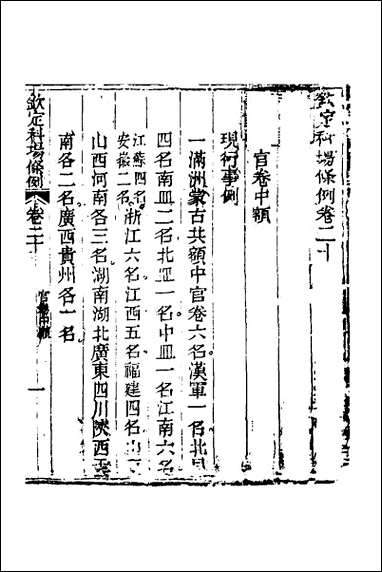 欽定科場條例卷二十
官卷中額
現行事例
一滿洲蒙古共額中官卷六名漢軍一名北
四名南皿二名北皿一名中皿一名江南六名
江蘇四名
安徽二名
浙江六名江西五名福建四名山
山西河南各三名湖南湖北廣東四川陝西
南各二名廣西貴州各一名
欽定科場條例
卷二十
官卷中額
一